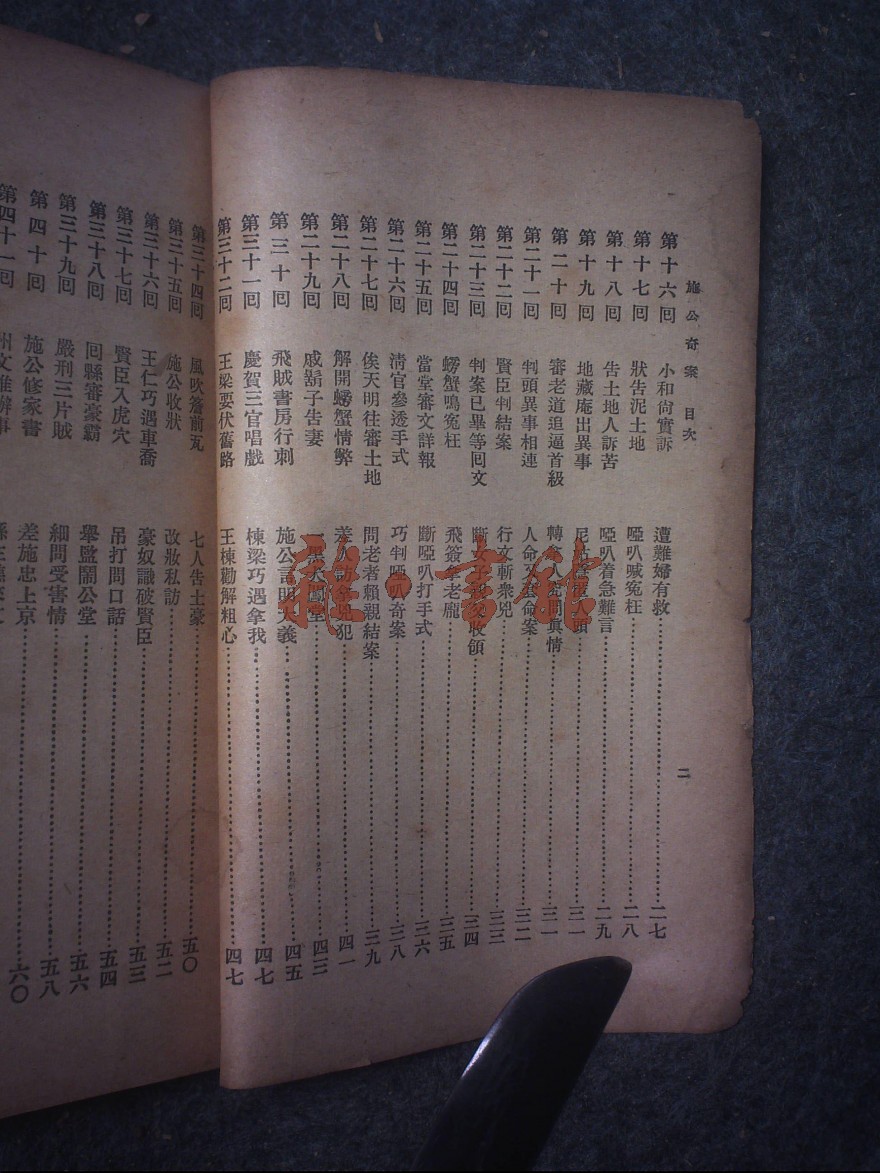 施公奇案 目次
二
第十六回 小和尙實訴 遭難婦有救 二七
第十七回 狀吿泥土地 啞叭喊冤枉 二八
第十八回 吿土地人訴苦 啞叭着急難言 二九
第十九回 地藏庵出異事 尼 人頭 三一
第二十回 審老道追逼首級 轉 人究問眞情 三一
第二十一回 判頭異事相連 人命 命案 三二
第二十二回 賢臣判結案 行文斬衆兇 三三
第二十三回 判案已畢等回文 斷女子 收領 三四
第二十四回 螃蟹鳴冤枉 飛簽拿老龐 三五
第二十五回 當堂審文詳報 斷啞叭打手式 三六
第二十六回 淸官參透手式 巧判啞叭奇案 三八
第二十七回 俟天明往審土地 問老者賴親結案 三九
第二十八回 解開螃蟹情弊 差人訪 兇犯 四一
第二十九回 戚鬍子吿妻 堂 四三
第三十回 飛賊書房行刺 施公言明大義 四五
第三十一回 慶賀三官唱戲 棟梁巧遇拿我 四七
第三十二回 王梁要伏舊路 王棟勸解粗心 四七
第三十四回 風吹簷前瓦 七人吿土豪 五〇
第三十五回 施公收狀 改妝私訪 五二
第三十六回 王仁巧遇車喬 豪奴識破賢臣 五三
第三十七回 賢臣入虎穴 吊打問口話 五四
第三十八回 回縣審豪霸 擧監鬧公堂 五六
第三十九回 嚴刑三片賊 細問受害情 五八
第四十回 施公修家書 差施忠上京 六〇
第四十一回
雜·書館